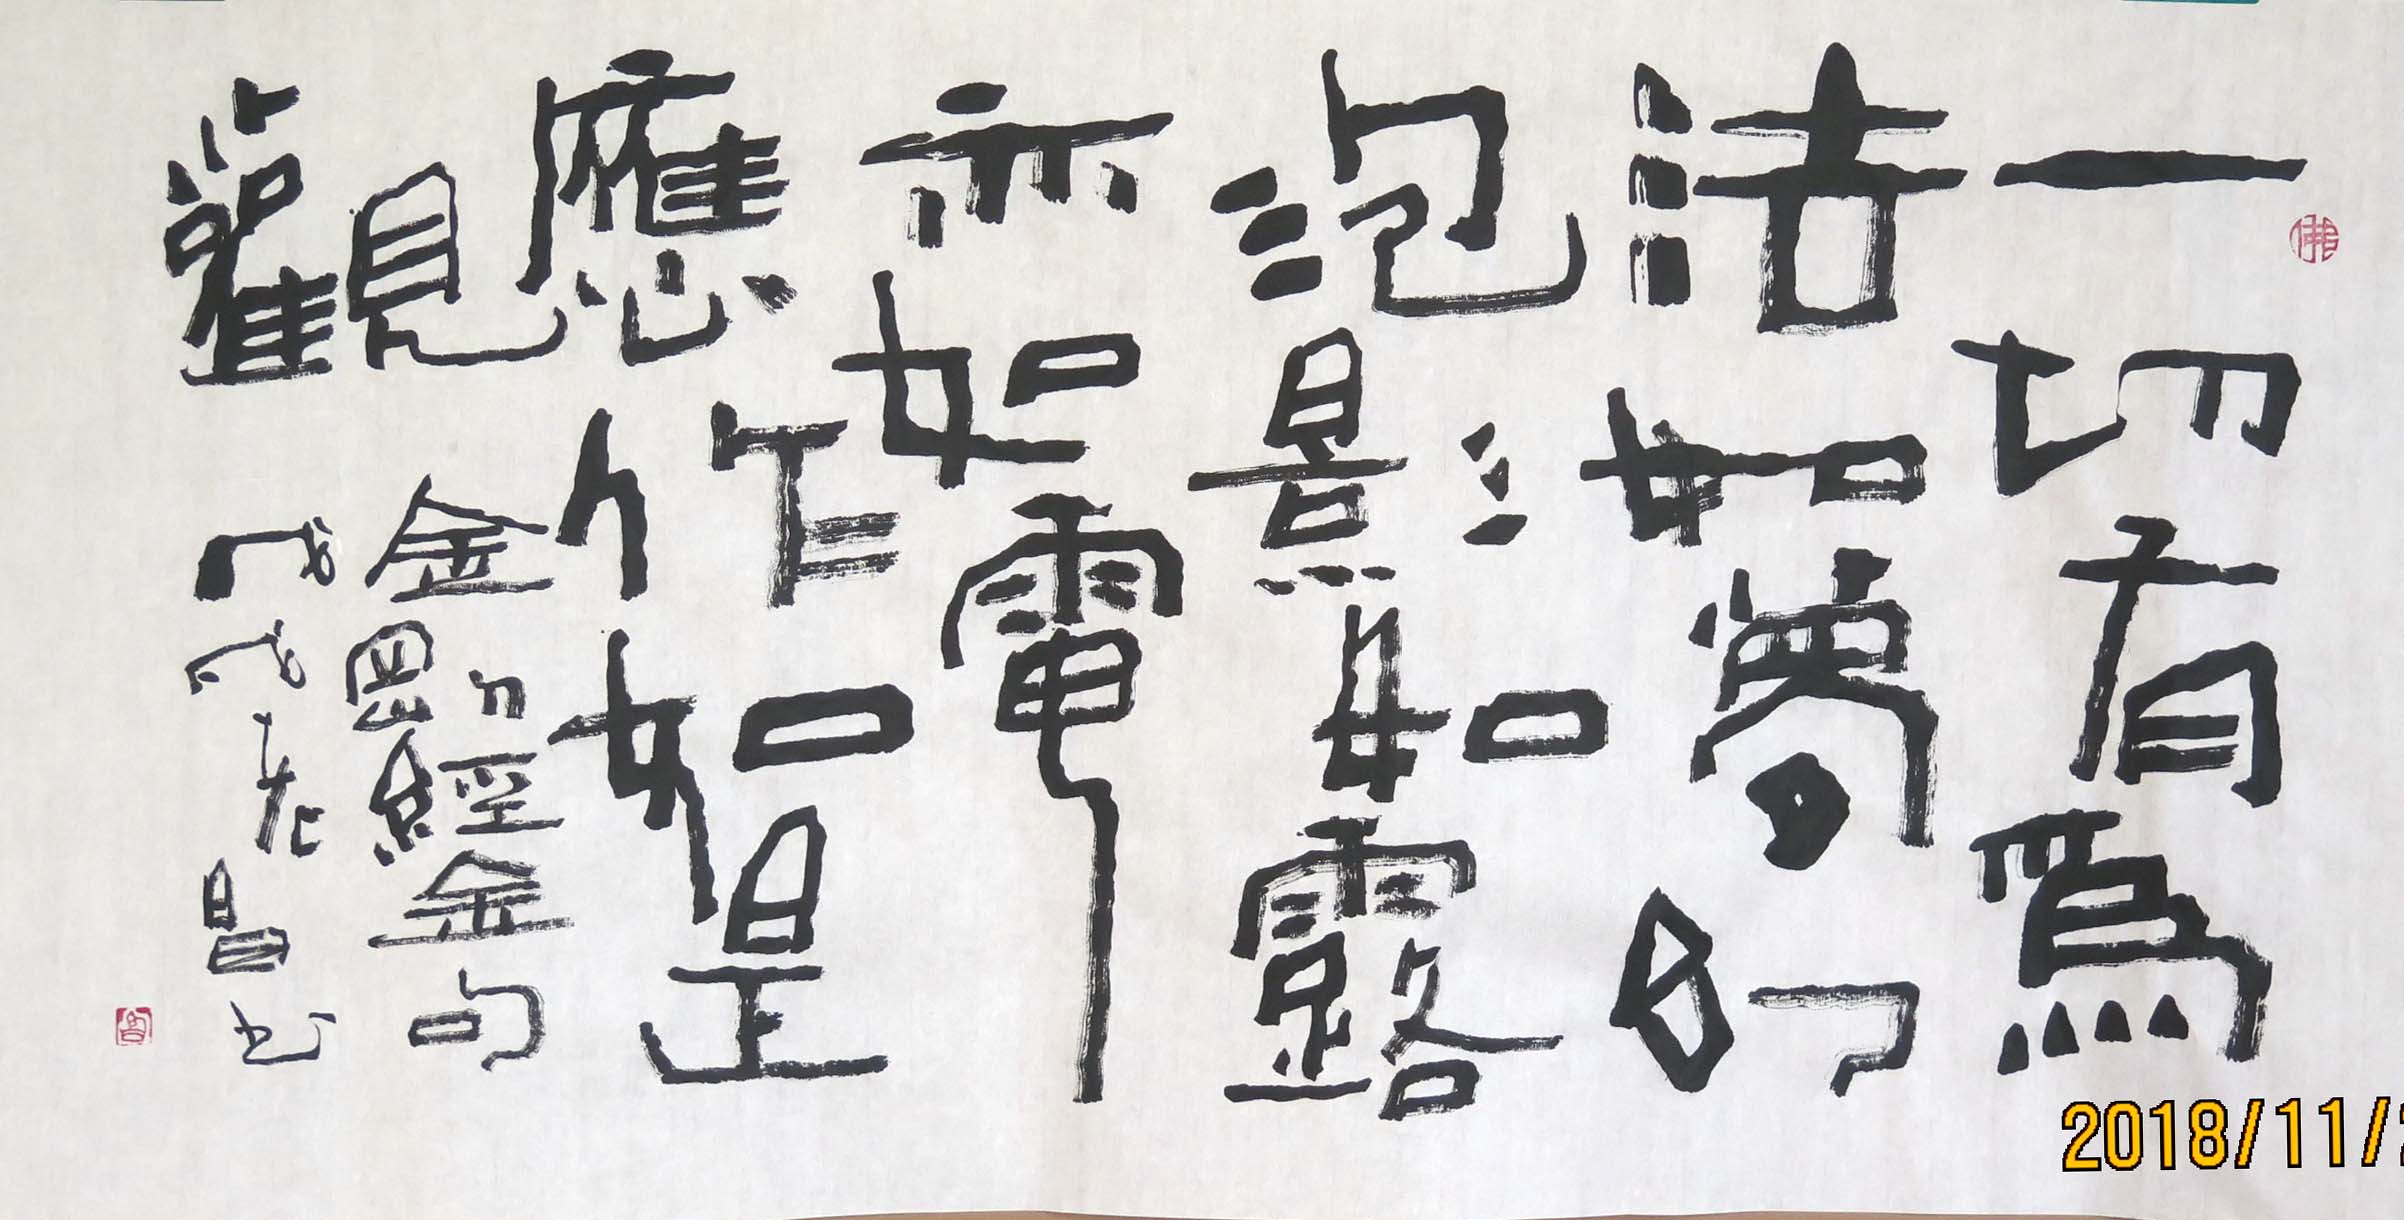 一切有爲
法如夢幻
泡影如露
亦如電
應作如是
觀
金剛經金句
戊戌昌书
佛
2018/11/2